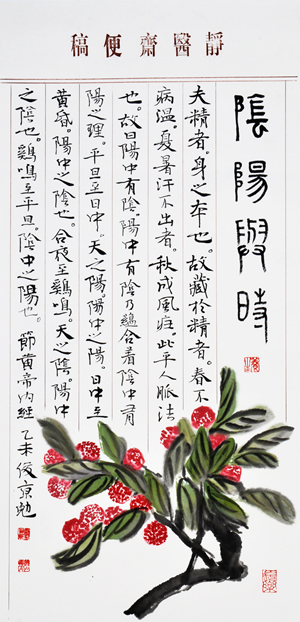 靜醫齋便稿
陰陽與時
夫精者。身之本也。故藏於精者。春不
病溫。夏暑汗不出者。秋成風瘧。此平人脈法
也。故曰陽中有陰。陽中有陰乃蘊合着陰中有
陽之理。平旦至日中。天之陽。陽中之陽。日中至
黃昏。陽中之陰也。合夜至鷄鳴。天之陰。陽中
之陰也。鷄鳴至平旦。陰中之陽也。節黃帝內經 乙未 京